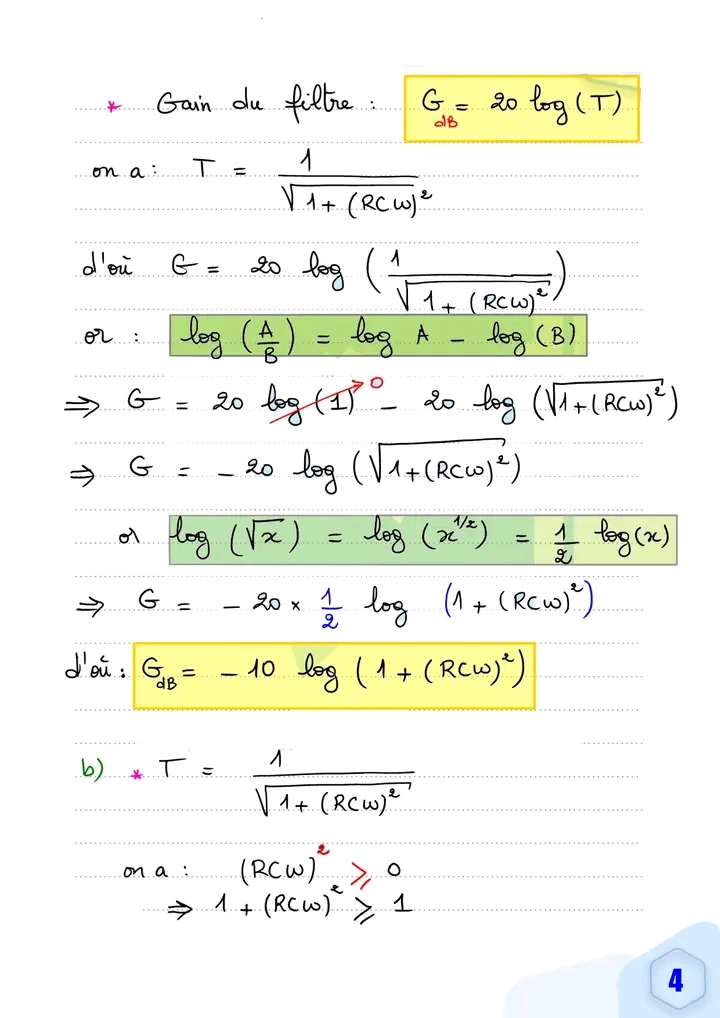 * Gain du filtre : G_dB = 20 log(T)
on a : T = 1 / √(1 + (RCω)²)
d'où G = 20 log (1 / √(1 + (RCω)²))
or : log (A/B) = log A - log (B)
⇒ G = 20 log (1) → 0 - 20 log (√(1+(RCω)²))
⇒ G = - 20 log (√(1+(RCω)²))
or log (√x) = log (x^1/2) = 1/2 log(x)
⇒ G = - 20 × 1/2 log (1 + (RCω)²)
d'où : G_dB = - 10 log (1 + (RCω)²)
b) * T = 1 / √(1 + (RCω)²)
on a : (RCω)² ⩾ 0
⇒ 1 + (RCω)² ⩾ 1
4